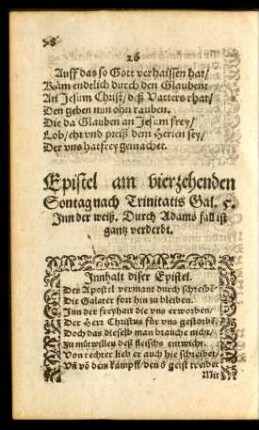 26
Auff das so Gott verhaissen hat/
Käm endelich durch den Glauben:
An Jesum Christ/ deß Vatters rhat/
Den geben nun ohn rauben.
Die da Glauben an Jesum frey/
Lob/ ehr vnd preiß dem Herren sey/
Der vns hat frey gemachet.
Epistel am vierzehenden
Sontag nach Trinitatis Gal. 5.
Inn der weiß. Durch Adams fall ist
gantz verderbt.
Innhalt diser Epistel.
Der Apostel vermant durch schreibē
Die Galater fort hin zu bleiben.
Inn der freyhait die vns erworben/
Der Herr Christus für vns gestorbē.
Doch das die selb man brauche nicht/
Zu můtwillen deß fleischs entwicht.
Von rechter lieb er auch hie schreibet/
Vñ vō dem kämpff/ den 8 geist treibet
Mit